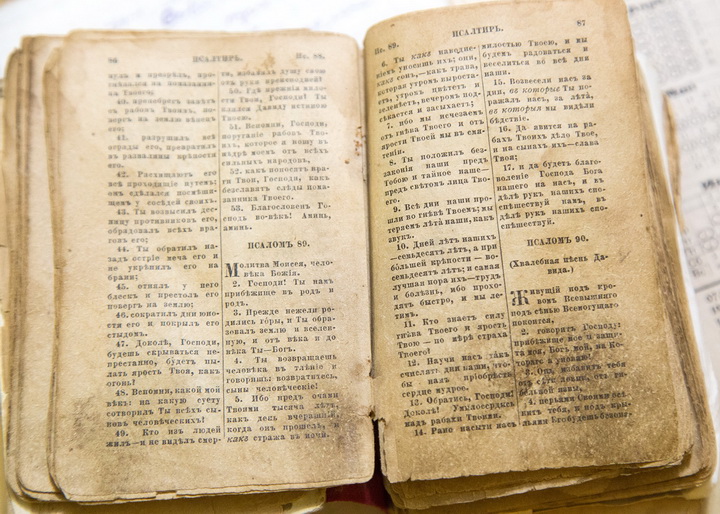 86 ПСАЛТИРЬ. Пс. 88.
Твоего;
40. пренебрегъ завѣтъ
съ рабомъ Твоимъ, по-
вергъ на землю вѣнецъ
его;
41. разрушилъ всѣ
ограды его, превратилъ
въ развалины крѣпости
его.
42. Расхищаютъ его
всѣ проходящіе путемъ;
онъ сдѣлался посмѣши-
щемъ у сосѣдей своихъ.
43. Ты возвысилъ дес-
ницу противниковъ его,
обрадовалъ всѣхъ вра-
говъ его;
44. Ты обратилъ на-
задъ остріе меча его и
не укрѣпилъ его на
брани;
45. отнялъ у него
блескъ и престолъ его
повергъ на землю;
46. сократилъ дни юно-
сти его и покрылъ его
стыдомъ.
47. Доколѣ, Господи,
будешь скрываться не-
престанно, будетъ пы-
лать ярость Твоя, какъ
огонь?
48. Вспомни, какой мой
вѣкъ: на какую суету
сотворилъ Ты всѣхъ сы-
новъ человѣческихъ?
49. Кто изъ людей
жилъ—и не видѣлъ смер-
ти, избавилъ душу свою
отъ руки преисподней?
50. Гдѣ прежнія мило-
сти Твои, Господи? Ты
клялся Давиду истиною
Твоею.
51. Вспомни, Господи,
поруганіе рабовъ Тво-
ихъ, которое я ношу въ
нѣдрѣ моемъ отъ всѣхъ
сильныхъ народовъ,
52. какъ поносятъ вра-
ги Твои, Господи, какъ
безславятъ слѣды пома-
занника Твоего.
53. Благословенъ Го-
сподь во-вѣкъ! Аминь,
аминь.
ПСАЛОМЪ 89.
Молитва Моисея, чело-
вѣка Божія.
2. Господи! Ты намъ
прибѣжище въ родъ и
родъ.
3. Прежде нежели ро-
дились го́ры, и Ты обра-
зовалъ землю и вселен-
ную, и отъ вѣка и до
вѣка Ты—Богъ.
4. Ты возвращаешь
человѣка въ тлѣніе и
говоришь: возвратитесь,
сыны человѣческіе!
5. Ибо предъ очами
Твоими тысяча лѣтъ,
какъ день вчерашній,
когда онъ прошелъ, и
какъ стража въ ночи.
Пс. 89. ПСАЛТИРЬ. 87
6. Ты какъ наводне-
ніемъ уносишь ихъ; они,
какъ сонъ,—какъ трава,
которая утромъ выроста-
етъ, утромъ цвѣтетъ и
зеленѣетъ, вечеромъ под-
сѣкается и засыхаетъ;
7. ибо мы исчезаемъ
отъ гнѣва Твоего и отъ
ярости Твоей мы въ смя-
теніи.
8. Ты положилъ без-
законія наши предъ
Тобою и тайное наше—
предъ свѣтомъ лица Тво-
его.
9. Всѣ дни наши про-
шли во гнѣвѣ Твоемъ; мы
теряемъ лѣта́ наши, какъ
звукъ.
10. Дней лѣтъ нашихъ
—семьдесятъ лѣтъ, а при
бо́льшей крѣпости — во-
семьдесятъ лѣтъ; и самая
лучшая пора ихъ—трудъ
и болѣзнь, ибо прохо-
дятъ быстро, и мы ле-
тимъ.
11. Кто знаетъ силу
гнѣва Твоего и ярость
Твою — по мѣрѣ страха
Твоего?
12. Научи насъ такъ
счислять дни наши, что-
бы намъ пріобрѣсть
сердце мудрое.
13. Обратись, Господи!
Доколѣ? Умилосердись
надъ рабами Твоими.
14. Рано насыти насъ
милостью Твоею, и мы
будемъ радоваться и
веселиться во всѣ дни
наши.
15. Возвесели насъ за
дни, въ которые Ты по-
ражалъ насъ, за лѣта́,
въ которыя мы видѣли
бѣдствіе.
16. Да явится на ра-
бахъ Твоихъ дѣло Твое,
и на сынахъ ихъ—слава
Твоя;
17. и да будетъ благо-
воленіе Господа Бога
нашего на насъ, и въ
дѣлѣ рукъ нашихъ спо-
спѣшествуй намъ, въ
дѣлѣ рукъ нашихъ спо-
спѣшествуй.
ПСАЛОМЪ 90.
(Хвалебная пѣснь Да-
вида.)
Живущій подъ кро-
вомъ Всевышняго
подъ сѣнью Всемогущаго
покоится,
2. говоритъ Господу:
прибѣжище мое и защи-
та моя, Богъ мой, на Ко-
тораго я уповаю!
3. Онъ избавитъ тебя
отъ сѣти ловца, отъ ги-
бельной язвы,
4. перьями Своими осѣ-
нитъ тебя, и подъ кры-
льями Его будешь безопа-